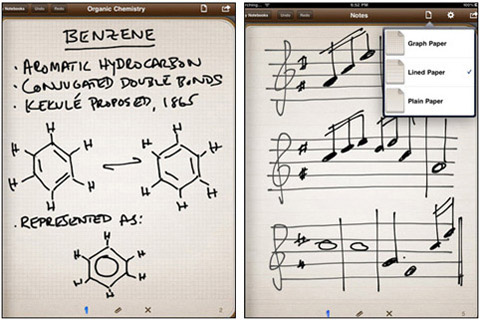 Notebooks
Undo
Redo
Organic Chemistry
BENZENE
• AROMATIC HYDROCARBON
• CONJUGATED DOUBLE BONDS
• KEKULÉ PROPOSED, 1865
H
H
H
H
H
H
H
H
H
H
H
H
• REPRESENTED AS:
H
H
H
H
H
H
2
ching...
9:52 PM
Notebooks
Undo
Redo
Notes
Graph Paper
Lined Paper ✓
Plain Paper
5